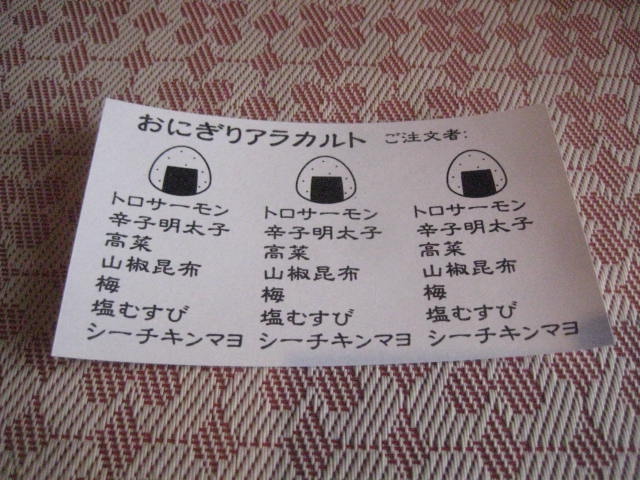 おにぎりアラカルト ご注文者:
トロサーモン トロサーモン トロサーモン
辛子明太子 辛子明太子 辛子明太子
高菜 高菜 高菜
山椒昆布 山椒昆布 山椒昆布
梅 梅 梅
塩むすび 塩むすび 塩むすび
シーチキンマヨ シーチキンマヨ シーチキンマヨ